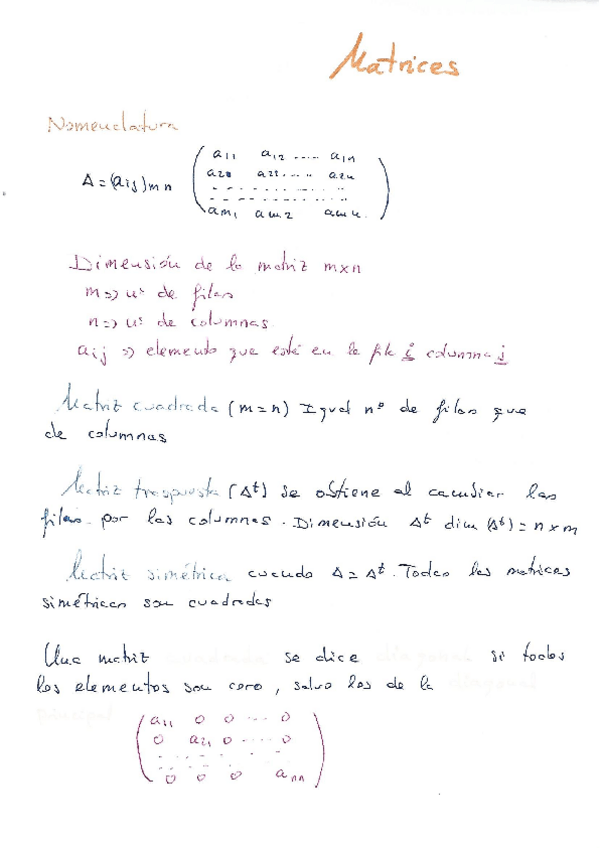 Matrices
Nomenclatura
A = (aij)mn
a11 a12 ..... a1n
a20 a21 .... a2n
- - - - - - - - - - - -
am1 am2 amn.
Dimensión de la matriz mxn
m => nº de filas
n => nº de columnas.
aij => elemento que está en la fila i columna j
Matriz cuadrada (m = n) Igual nº de filas que
de columnas
Matriz traspuesta (At) se obtiene al cambiar las
filas por las columnas. Dimensión At dim (At) = n x m
Matriz simétrica cuando A = At. Todas las matrices
simétricas son cuadradas
Una matriz cuadrada se dice diagonal si todos
los elementos son cero, salvo los de la diagonal
principal
a11 0 0 .... 0
0 a21 0 .... 0
- - - - - - - - - -
0 0 0 ann